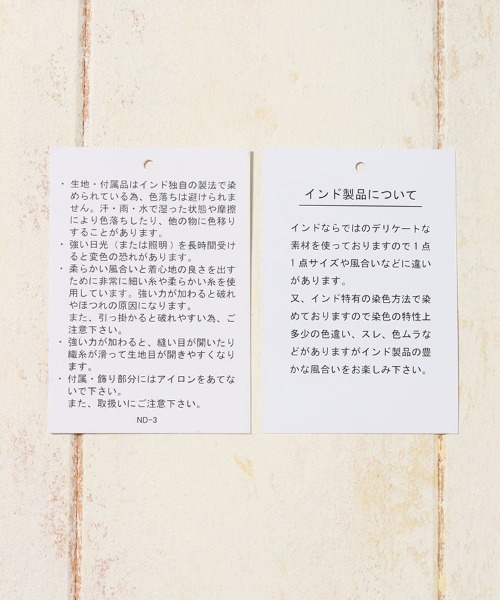 ・生地・付属品はインド独自の製法で染
められている為、色落ちは避けられま
せん。汗・雨・水で湿った状態や摩擦
により色落ちしたり、他の物に色移り
することがあります。
・強い日光（または照明）を長時間受け
ると変色の恐れがあります。
・柔らかい風合いと着心地の良さを出す
ために非常に細い糸や柔らかい糸を使
用しています。強い力が加わると破れ
やほつれの原因になります。
また、引っ掛かると破れやすい為、ご
注意下さい。
・強い力が加わると、縫い目が開いたり
織糸が滑って生地目が開きやすくなり
ます。
・付属・飾り部分にはアイロンをあてな
いで下さい。
また、取扱いにご注意下さい。
ND-3
インド製品について
インドならではのデリケートな
素材を使っておりますので１点
１点サイズや風合いなどに違い
があります。
又、インド特有の染色方法で染
めておりますので染色の特性上
多少の色違い、スレ、色ムラな
どがありますがインド製品の豊
かな風合いをお楽しみ下さい。